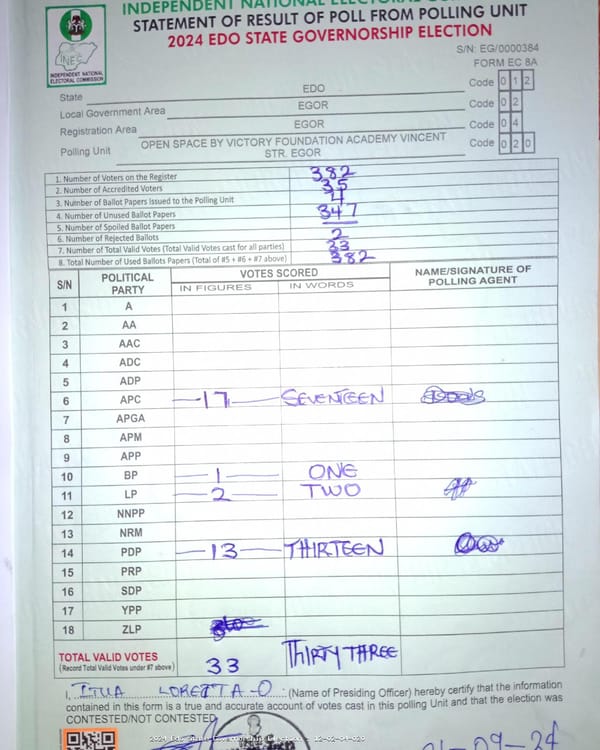 INDEPENDENT NATIONAL ELECTORAL
STATEMENT OF RESULT OF POLL FROM POLLING UNIT
2024 EDO STATE GOVERNORSHIP ELECTION
INEC
INDEPENDENT NATIONAL
ELECTORAL COMMISSION
S/N: EG/0000384
FORM EC 8A
State EDO Code 0 1 2
Local Government Area EGOR Code 0 2
Registration Area EGOR Code 0 4
Polling Unit OPEN SPACE BY VICTORY FOUNDATION ACADEMY VINCENT STR. EGOR Code 0 2 0
1. Number of Voters on the Register 382
2. Number of Accredited Voters 35
3. Number of Ballot Papers Issued to the Polling Unit
4. Number of Unused Ballot Papers 347
5. Number of Spoiled Ballot Papers
6. Number of Rejected Ballots 2
7. Number of Total Valid Votes (Total Valid Votes cast for all parties) 33
8. Total Number of Used Ballots Papers (Total of #5 + #6 + #7 above) 382
S/N POLITICAL PARTY VOTES SCORED NAME/SIGNATURE OF POLLING AGENT
IN FIGURES IN WORDS
1 A
2 AA
3 AAC
4 ADC
5 ADP
6 APC 17 SEVENTEEN
7 APGA
8 APM
9 APP
10 BP 1 ONE
11 LP 2 TWO
12 NNPP
13 NRM
14 PDP 13 THIRTEEN
15 PRP
16 SDP
17 YPP
18 ZLP
TOTAL VALID VOTES 33 THIRTY THREE
(Record Total Valid Votes under #7 above)
I, ITUA LORETTA-O (Name of Presiding Officer) hereby certify that the information
contained in this form is a true and accurate account of votes cast in this polling Unit and that the election was
CONTESTED/NOT CONTESTED
12-02-04-020
-09-24